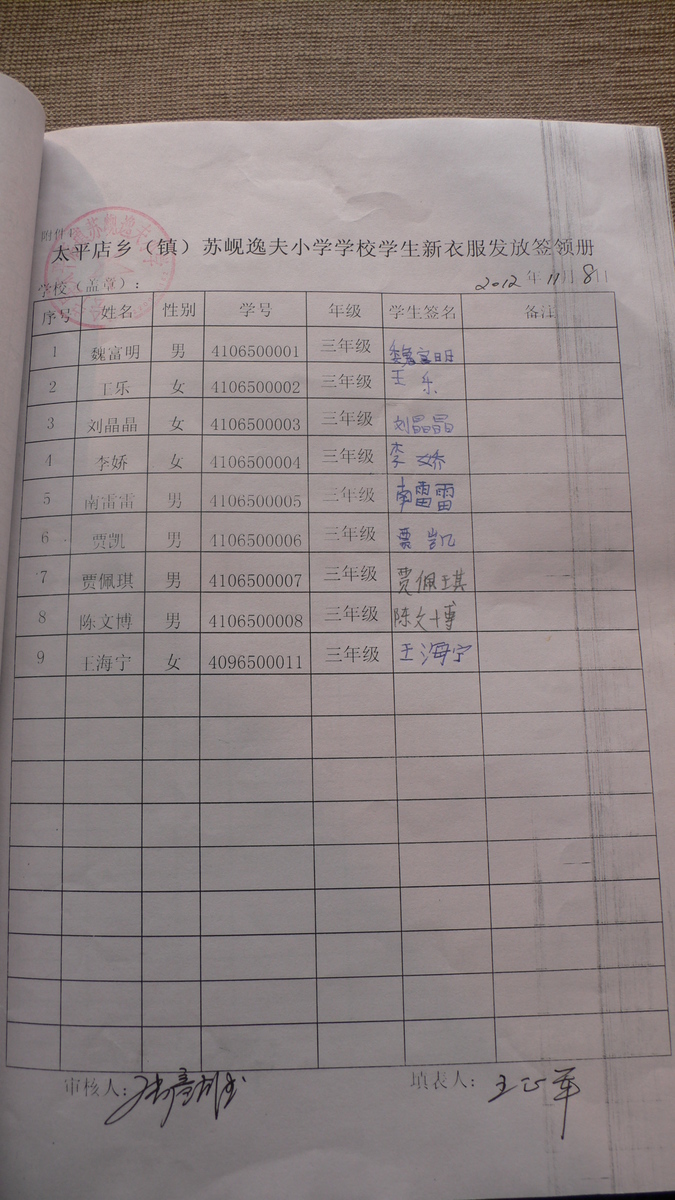 附件1
太平店乡（镇）苏岘逸夫小学学校学生新衣服发放签领册
学校（盖章）： 2012年11月8日
序号 姓名 性别 学号 年级 学生签名 备注
1 魏富明 男 4106500001 三年级 魏富明
2 王乐 女 4106500002 三年级 王乐
3 刘晶晶 女 4106500003 三年级 刘晶晶
4 李娇 女 4106500004 三年级 李娇
5 南雷雷 男 4106500005 三年级 南雷雷
6 贾凯 男 4106500006 三年级 贾凯
7 贾佩琪 男 4106500007 三年级 贾佩琪
8 陈文博 男 4106500008 三年级 陈文博
9 王海宁 女 4096500011 三年级 王海宁
审核人： 填表人：